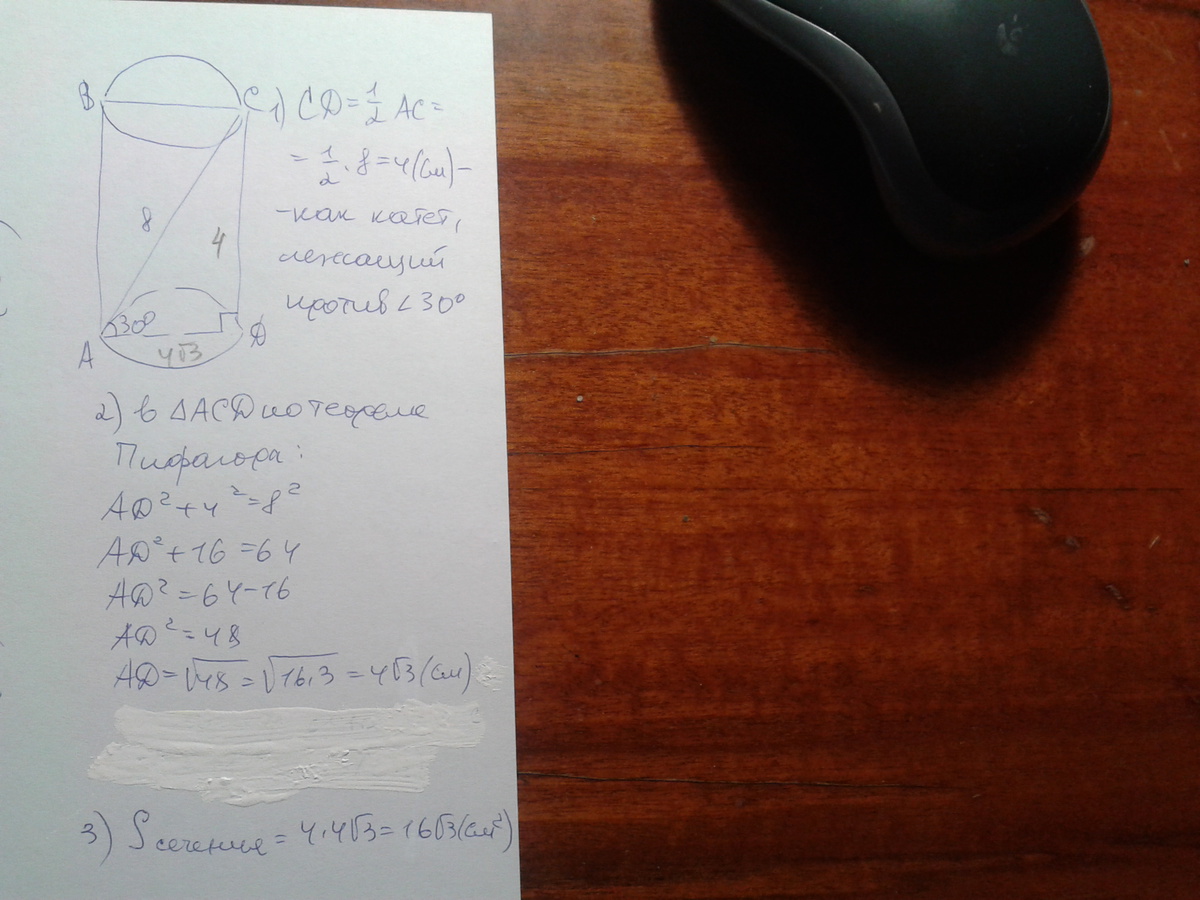 B
C
8
4
30°
A
D
4√3
1) CD = 1/2 AC =
= 1/2 · 8 = 4 (см) –
– как катет,
лежащий
против ∠30°
2) в △ACD по теореме
Пифагора:
AD² + 4² = 8²
AD² + 16 = 64
AD² = 64 – 16
AD² = 48
AD = √48 = √16·3 = 4√3 (см)
3) S сечения = 4 · 4√3 = 16√3 (см²)